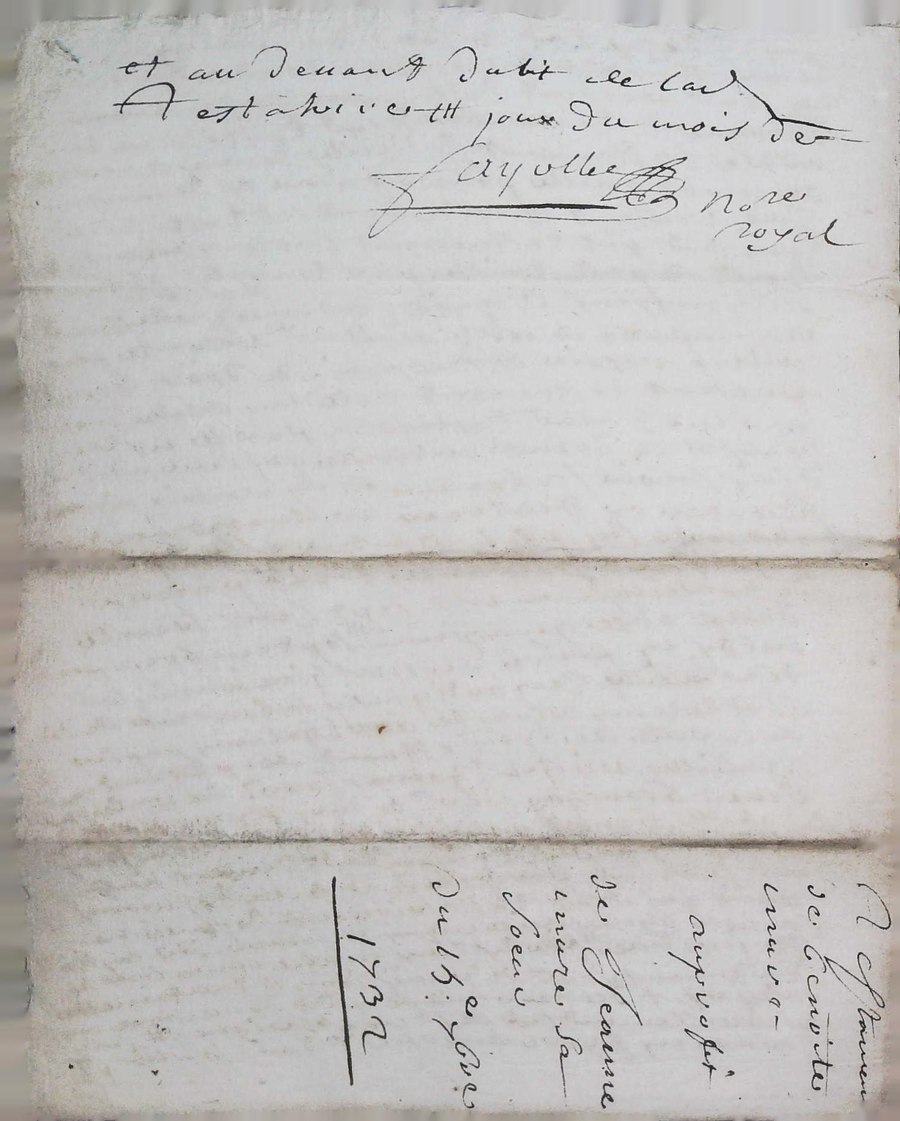 et au devant dubt de lad
testatrice
jour du mois de
fayolle
nore
royal
Testamen
de Benoite
mure
au profit
de Jeanne
mure sa
Soeur
du 15e xbre
1732